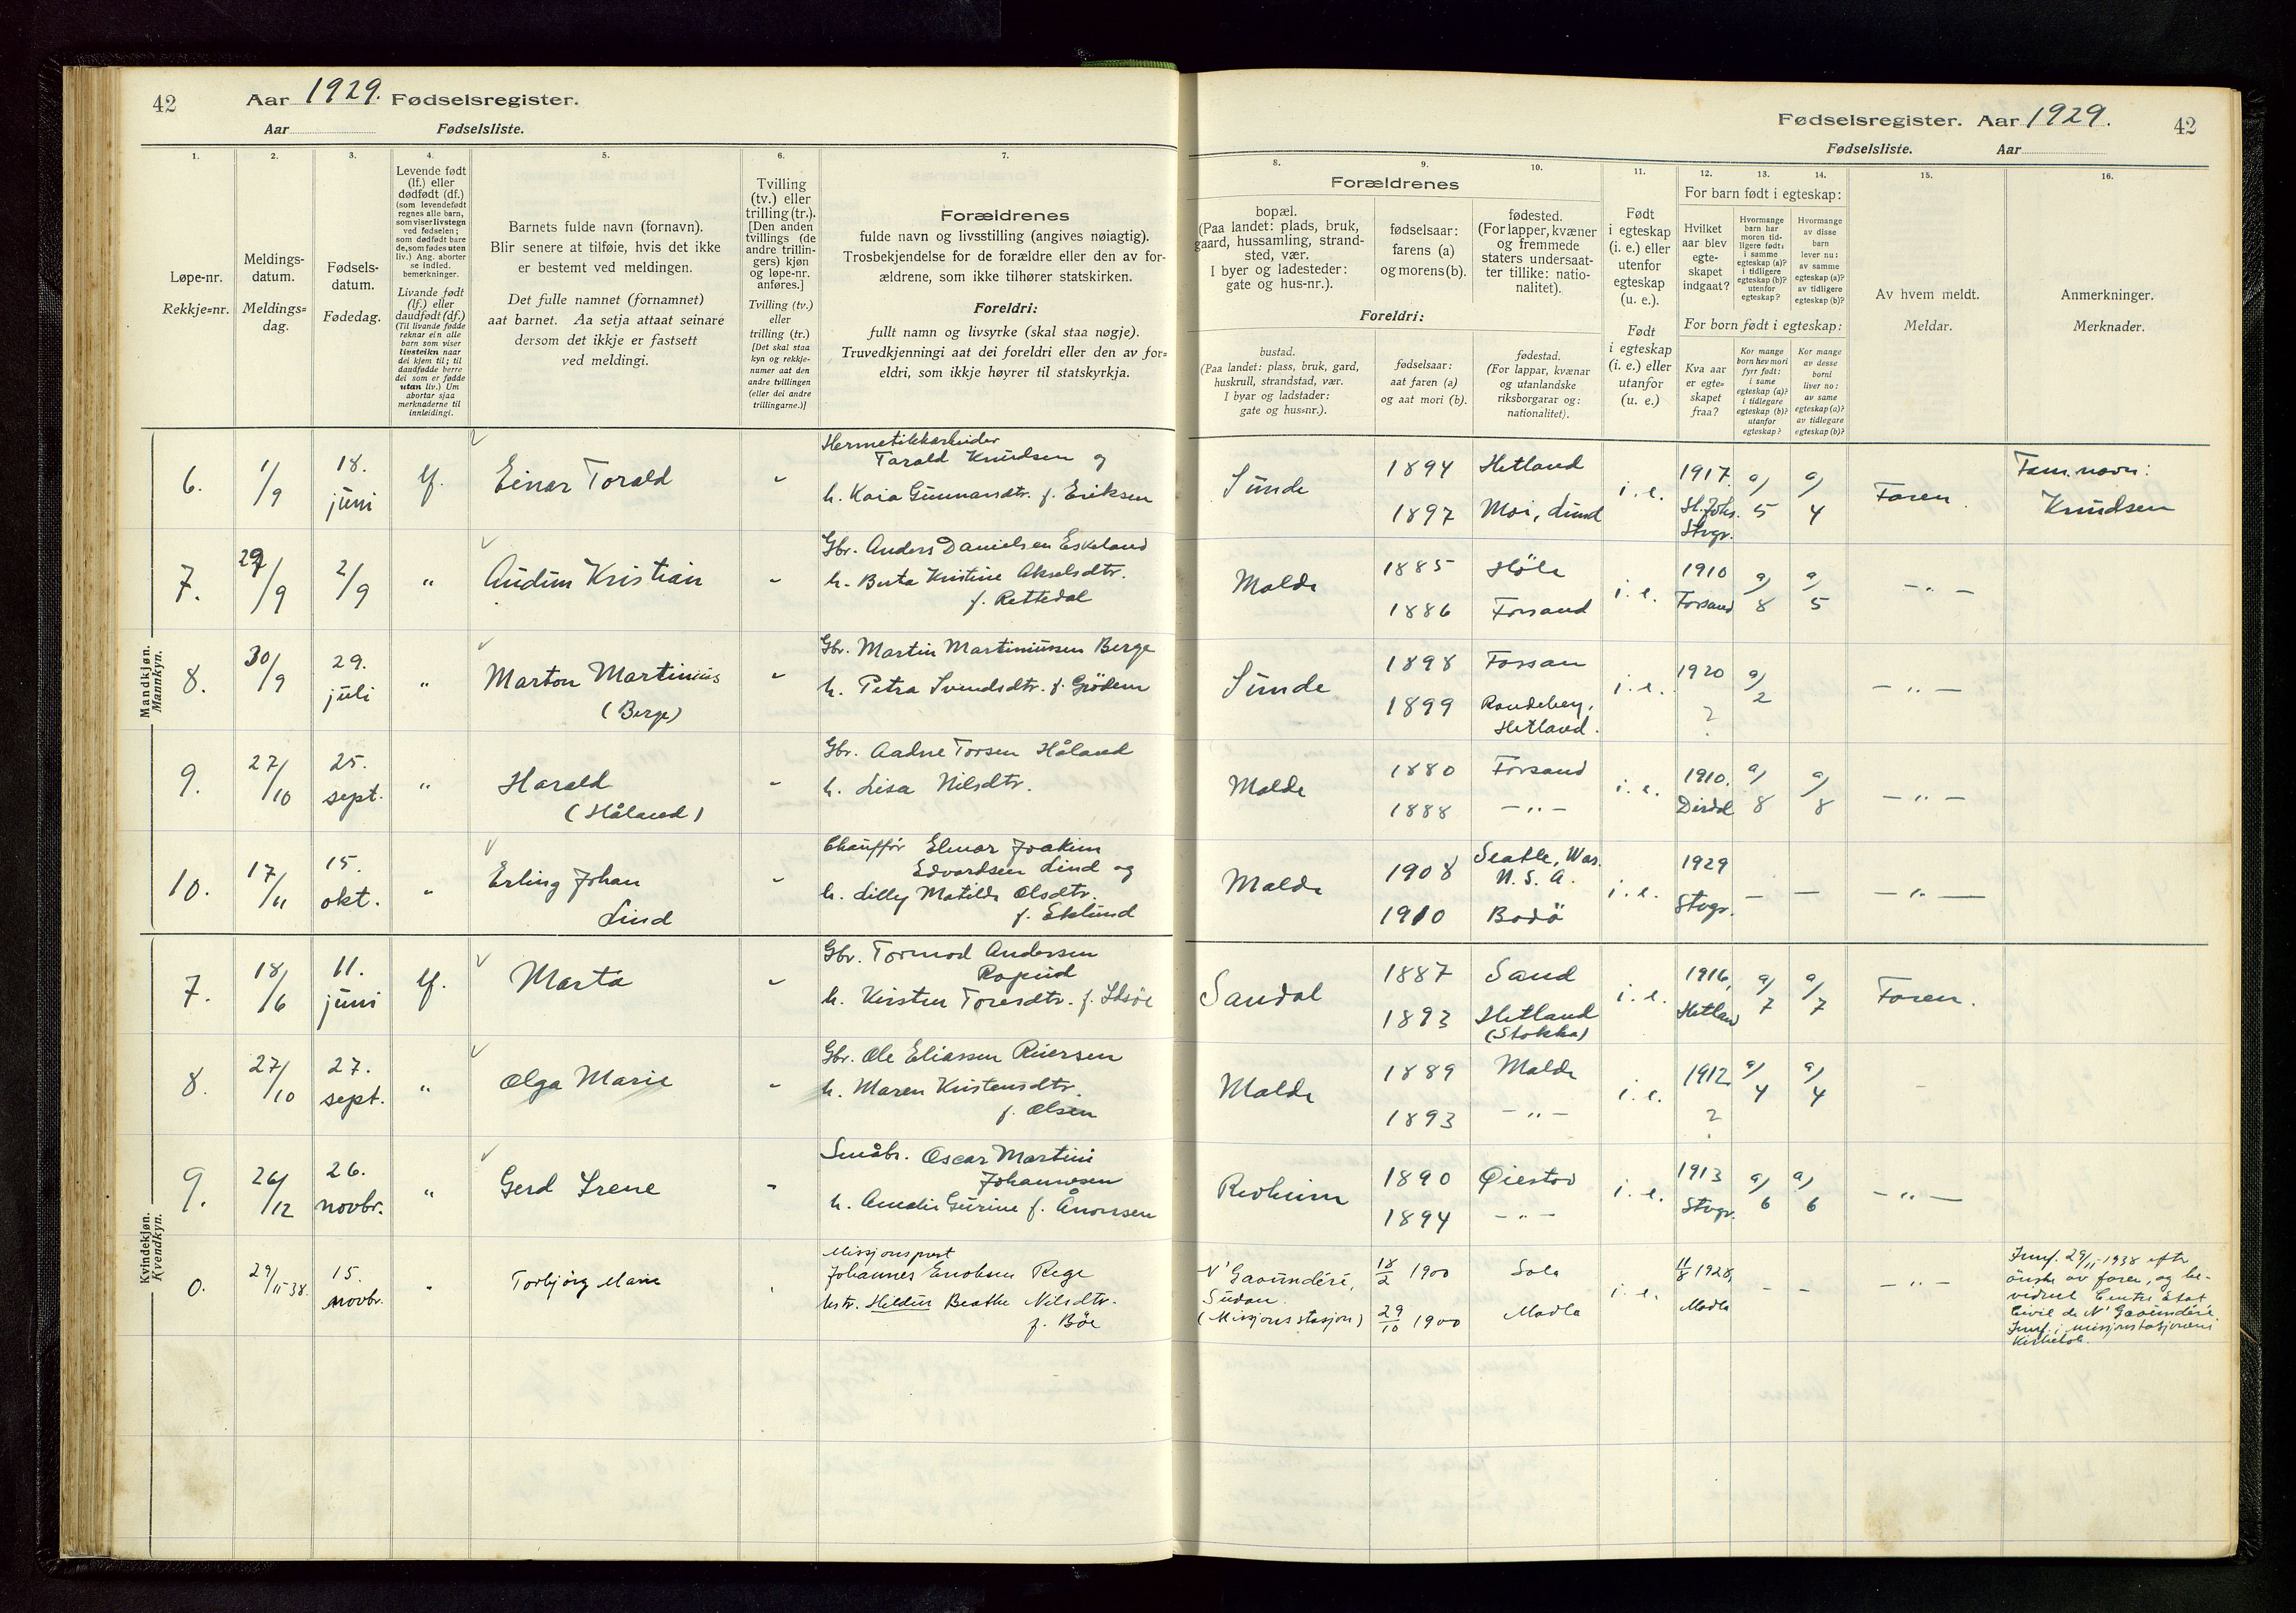 42
Aar 1929. Fødselsregister.
Aar Fødselsliste.
Fødselsregister. Aar 1929.
42
Fødselsliste. Aar
1.
Løpe-nr.
Rekkje=nr.
2.
Meldings-
datum.
Meldings=
dag.
3.
Fødsels-
datum.
Fødedag.
4.
Levende født
(lf.) eller
dødfødt (df.)
(som levendefødt
regnes alle barn,
som viser livstegn
ved fødselen;
som dødfødt bare
de, som fødes uten
liv.) Ang. aborter
se indled.
bemerkninger.
Livande født
(lf.) eller
daudfødt (df.)
(Til livande fødde
reknar ein alle
barn som viser
livsteikn naar
dei kjem til; til
daudfødde berre
dei som er fødde
utan liv.) Um
abortar sjaa
merknaderne til
innleidingi.
5.
Barnets fulde navn (fornavn).
Blir senere at tilføie, hvis det ikke
er bestemt ved meldingen.
Det fulle namnet (fornamnet)
aat barnet. Aa setja attaat seinare
dersom det ikkje er fastsett
ved meldingi.
6.
Tvilling
(tv.) eller
trilling (tr.).
[Den anden
tvillings (de
andre trillin-
gers) kjøn
og løpe-nr.
anføres.]
Tvilling (tv.)
eller
trilling (tr.)
[Det skal staa
kyn og rekkje-
numer aat den
andre tvillingen
(eller dei andre
trillingarne.)]
7.
Forældrenes
fulde navn og livsstilling (angives nøiagtig).
Trosbekjendelse for de forældre eller den av for-
ældrene, som ikke tilhører statskirken.
Foreldri:
fullt namn og livsyrke (skal staa nøgje).
Truvedkjenningi aat dei foreldri eller den av for=
eldri, som ikkje høyrer til statskyrkja.
8.
Forældrenes
bopæl.
(Paa landet: plads, bruk,
gaard, hussamling, strand-
sted, vær.
I byer og ladesteder:
gate og hus-nr.).
Foreldri:
bustad.
(Paa landet: plass, bruk, gard,
huskrull, strandstad, vær.
I byar og ladstader:
gate og hus=nr.).
9.
fødselsaar:
farens (a)
og morens (b).
fødselsaar:
aat faren (a)
og aat mori (b).
10.
fødested.
(For lapper, kvæner
og fremmede
staters undersaat-
ter tillike: natio-
nalitet).
fødestad.
(For lappar, kvænar
og utanlandske
riksborgarar og:
nationalitet).
11.
Født
i egteskap
(i. e.) eller
utenfor
egteskap
(u. e.).
Født
i egteskap
(i. e.) eller
utanfor
(u. e.)
12.
13.
14.
For barn født i egteskap:
Hvilket
aar blev
egte-
skapet
indgaat?
Hvormange
barn har
moren tid-
ligere født:
i samme
egteskap (a)?
i tidligere
egteskap (b)?
utenfor
egteskap?
Hvormange
av disse
barn
lever nu:
av samme
egteskap (a)?
av tidligere
egteskap (b)?
For born født i egteskap:
Kva aar
er egte=
skapet
fraa?
Kor mange
born hev mori
fyrr født:
i same
egteskap (a)?
i tidlegare
egteskap (b)?
utanfor
egteskap?
Kor mange
av desse
borni
liver no:
av same
egteskap (a)?
av tidlegare
egteskap (b)?
15.
Av hvem meldt.
Meldar.
16.
Anmerkninger.
Merknader.
Mandkjøn.
Mannkyn.
6. 1/9 18. juni lf. Einar Torald
Hermetikkarbeider
Tarald Knudsen og
h. Kaia Gunnarsdtr. f. Eriksen
Sunde 1894 Hetland
1897 Moi, Lund
i. e. 1917. St. Joh. Stvgr. a) 5 a) 4 Faren
Fam.navn:
Knudsen
7. 29/9 2/9 " Audun Kristian
Gbr. Anders Danielsen Eskeland
h. Berta Kristine Akselsdtr.
f. Rettedal
Malde 1885 Høle
1886 Forsand
i. e. 1910 Forsand a) 8 a) 5 — " —
8. 30/9 29. juli " Marton Martinius
(Berge)
Gbr. Martin Martiniussen Berge
h. Petra Svendsdtr. f. Grödem
Sunde 1898 Fossan
1899 Randeberg,
Hetland.
i. e. 1920 ? a) 2 — " —
9. 27/10 25. sept. " Harald
(Håland)
Gbr. Aadne Torsen Håland
h. Lisa Nilsdtr.
Malde 1880 Forsand
1888 — " —
i. e. 1910. Dirdal a) 8 a) 8 — " —
10. 17/11 15. okt. " Erling Johan
Lind
Chauffør Elmar Joakim
Edvardsen Lind og
h. Lilly Matilde Olsdtr.
f. Eklund
Malde 1908 Seatle, Was.
U. S. A.
1910 Bodö
i. e. 1929 Stvgr. — — — " —
Kvindekjøn.
Kvendkyn.
7. 18/6 11. juni lf. Marta
Gbr. Tormod Andersen
h. Kirsten Toresdtr. f. Idsöe
Sandal 1887 Sand
1893 Hetland
(Stokka)
i. e. 1916, Hetlan a) 7 a) 7 Faren.
8. 27/10 27. sept. " Olga Marie
Gbr. Ole Eliassen Riersen
h. Maren Kristensdtr.
f. Olsen
Malde 1889 Malde
1893 — " —
i. e. 1912 ? a) 4 a) 4
9. 26/12 26. novbr. " Gerd Irene
Småbr. Oscar Martini
Johannesen
h. Amalie Gurine f. Ånonsen
Revheim 1890 Øiestad
1894 — " —
i. e. 1913 Stvgr. a) 6 a) 6 — " —
0. 29/11-38. 15. novbr. " Torbjørg Marie
Missjonsprest
Johannes Enoksen Rege
hstr. Heldine Beathe Nilsdtr.
f. Böe
N'Gaoundéré,
Sudan.
(Missjonsstasjon)
18/2 1900 Sola
29/10 1900 Madla
i. e. 11/8 1928, Madla - - — " —
Innf. 29/11-1938 efter
önske av faren, og be-
vidnet Centre Etat
Civil de N'Gaoundéré
Innf. i missjonsstasjonens
kirkebok.